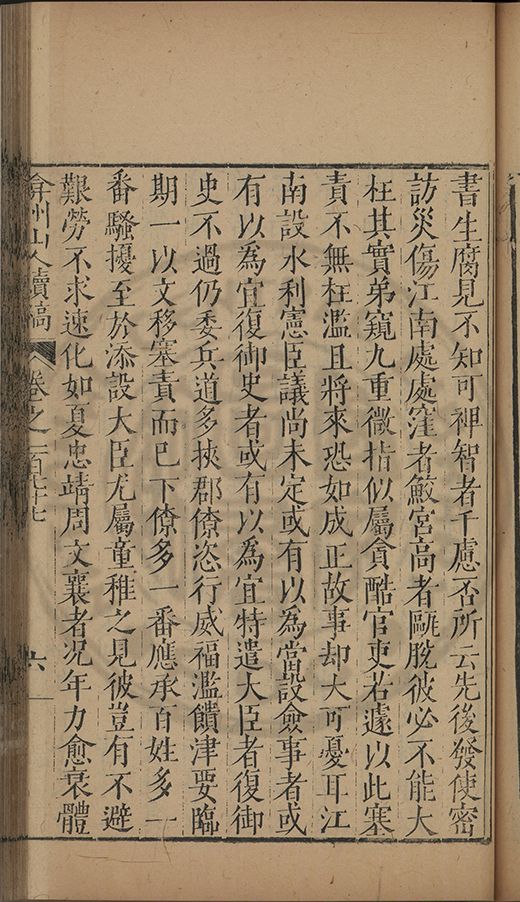 書生腐見不知可裨智者千慮否所云先後發使密
訪災傷江南處處窪者鮫宮高者甌脫彼必不能大
枉其實弟窺九重微指似屬貪酷官吏若遽以此塞
責不無枉濫且將來恐如成正故事却大可憂耳江
南設水利憲臣議尚未定或有以為當設僉事者或
有以為宜復御史者或有以為宜特遣大臣者復御
史不過仍委兵道多挾郡僚恣行威福濫饋津要臨
期一以文移塞責而已下僚多一番應承百姓多一
番騷擾至於添設大臣尤屬童稚之見彼豈有不避
艱勞不求速化如夏忠靖周文襄者况年力愈衰體
弇州山人續稿 卷之一百七十七 六